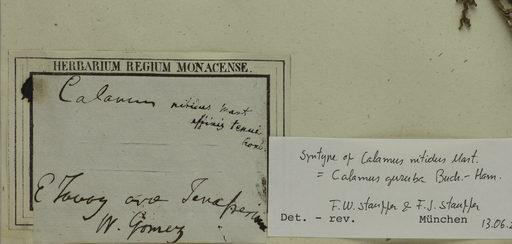 HERBARIUM REGIUM MONACENSE.
Calamus nitidus Mart
affinis tenui
Roxb.
E Tavoy ora Tenasserim
W. Gomez
Syntype of Calamus nitidus Mart.
= Calamus guruba Buch.-Ham.
F.W. Stauffer & F.J. Stauffer
Det. - rev. München 13.06.2